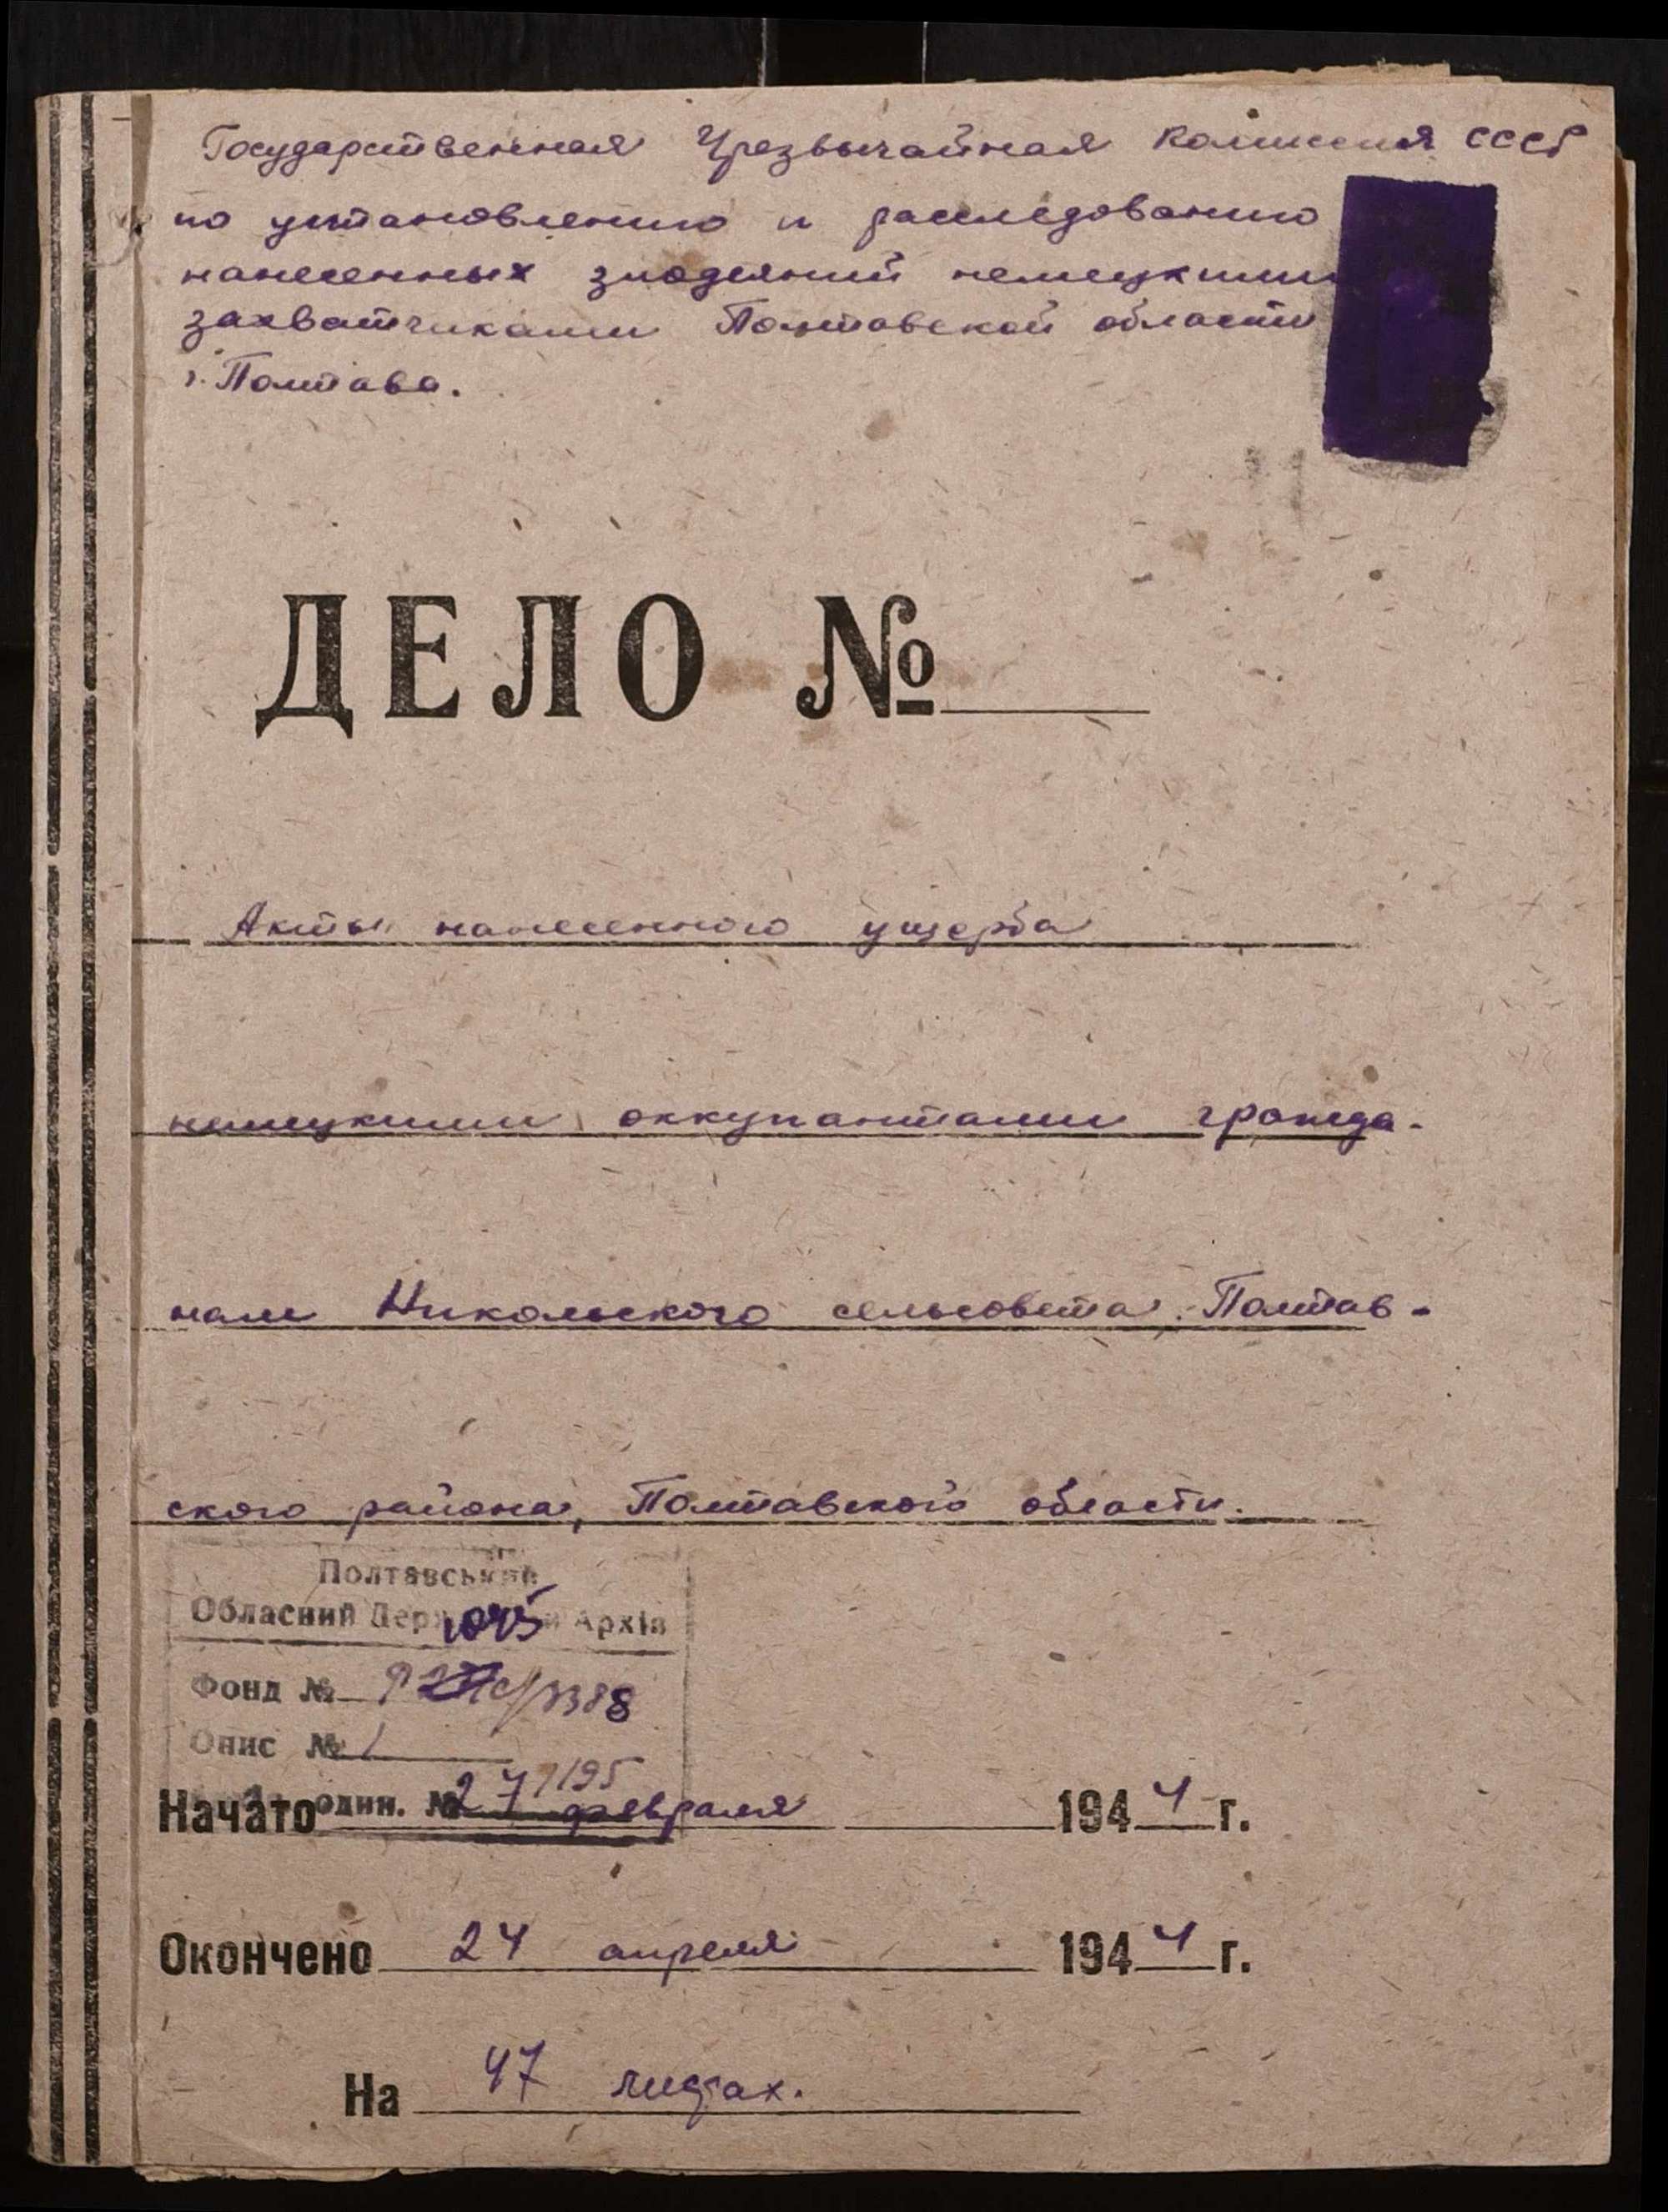 Государственная Чрезвычайная Комиссия СССР
по установлению и расследованию
нанесенных злодеяний немецкими
захватчиками Полтавской области
г. Полтава.
ДЕЛО №
Акты нанесенного ущерба
немецкими оккупантами гражда-
нам Никольского сельсовета, Полтав-
ского района, Полтавской области.
Полтавський
Обласний Державний Архів
1045
Фонд № Р /3388
Опис № 1
один. №
1195
Начато 27 февраля 1944 г.
Окончено 24 апреля 1944 г.
На 47 листах.